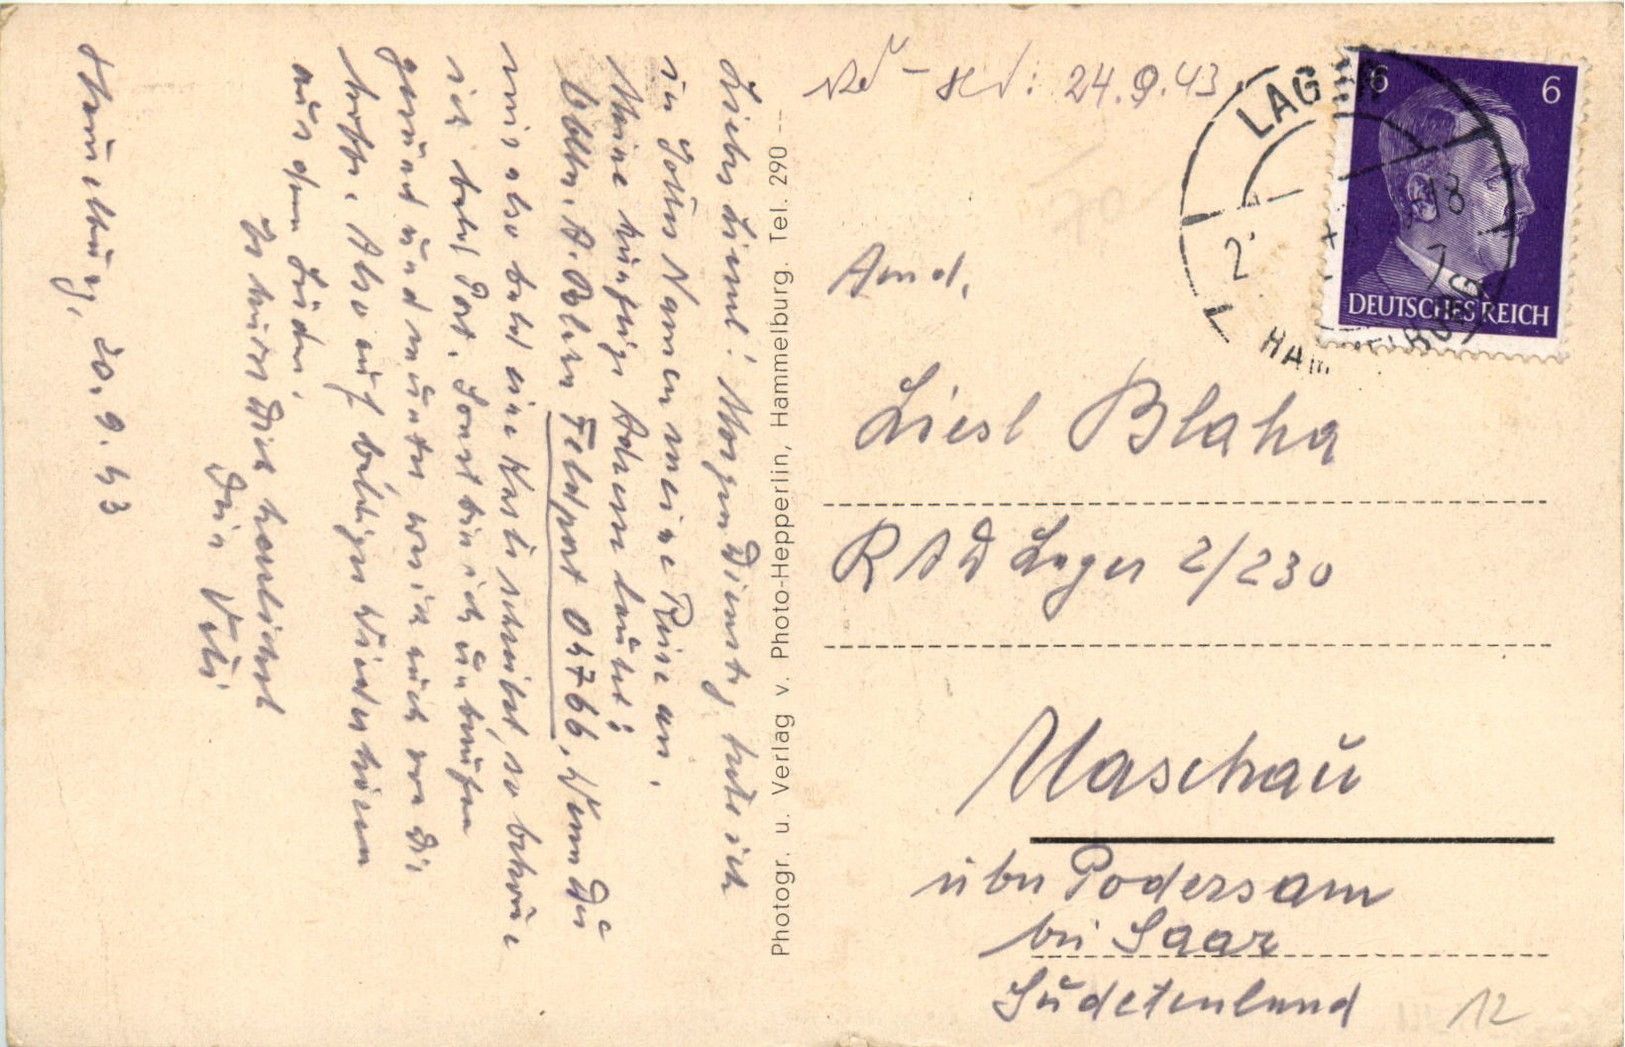 Hammelburg, 20.9.43
Liebes Liesl! Morgen Dienstag trete ich
in Gottes Namen meine Reise an.
Meine künftige Adresse lautet:
Feldpost 04766. Wenn Du
mir also bald eine Karte schreibst, so bekomme
ich bald Post. Sonst bin ich
gesund und munter was ich auch von Dir
hoffe. Also auf baldiges Wiederhören
aus dem Süden.
Es küsst Dich herzlichst
Dein
Photogr. u. Verlag v. Photo-Hepperlin, Hammelburg. Tel. 290
24.9.43
LAGER
HAMMELBURG
6 6
DEUTSCHES REICH
Liesl Blaha
RAD Lager 2/230
Maschau
über Podersam
bei Saaz
Sudetenland
12